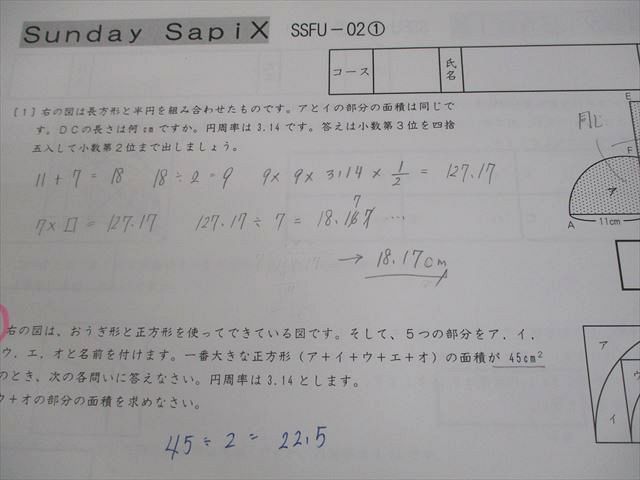 Sunday SapiX SSFU-02①
コース 氏名
[1] 右の図は長方形と半円を組み合わせたものです。アとイの部分の面積は同じで
す。DCの長さは何cmですか。円周率は3.14です。答えは小数第3位を四捨
五入して小数第2位まで出しましょう。
E
同じ
F
ア
A 11cm
11+7=18 18÷2=9 9×9×3.14×1/2=127.17
7×□=127.17 127.17÷7=18.167 …
7
→ 18.17cm
右の図は、おうぎ形と正方形を使ってできている図です。そして、5つの部分をア.イ.
ウ.エ.オと名前を付けます。一番大きな正方形(ア+イ+ウ+エ+オ)の面積が 45cm²
のとき、次の各問いに答えなさい。円周率は3.14とします。
ウ+オの部分の面積を求めなさい。
ア
ウ
イ
45÷2=22.5